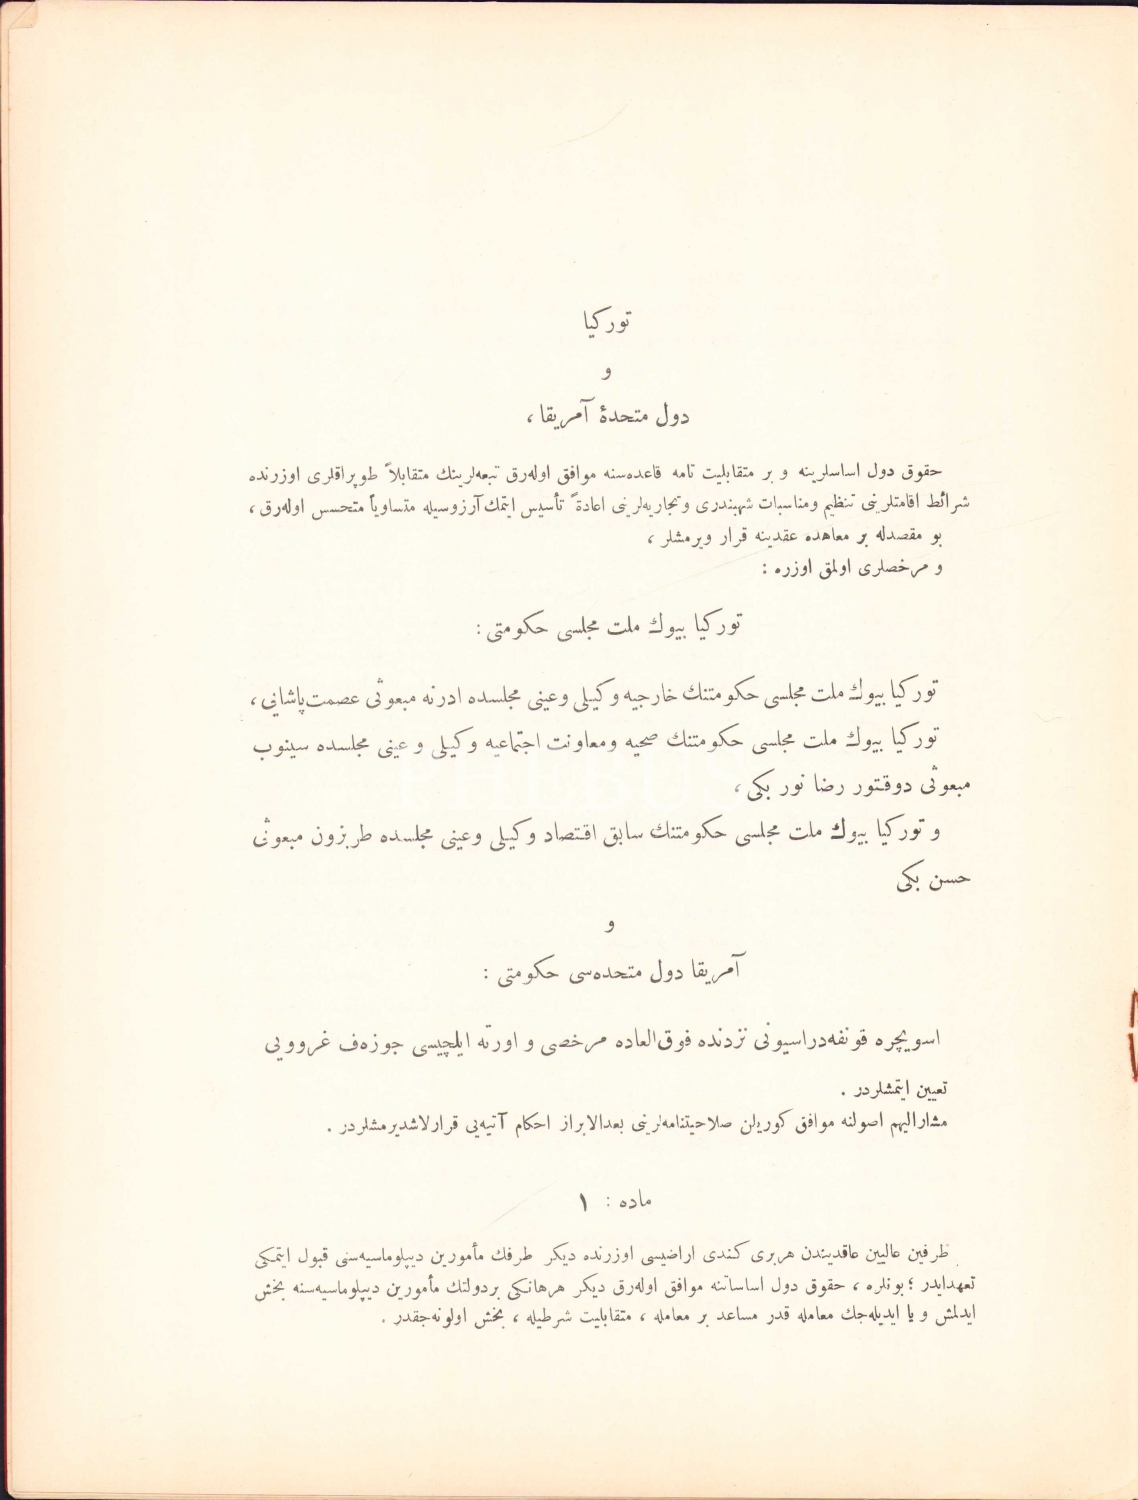 توركيا
و
دول متحدهٔ آمريقا،
حقوق دول اساسلرينه و بر متقابليت تامه قاعده‌سنه موافق اوله‌رق تبعه‌لرينك متقابلاً طوپراقلرى اوزرنده
شرائط اقامتلرينى تنظيم ومناسبات شهبندرى وتجاريه‌لرينى اعادةً تأسيس ايتمك آرزوسيله متساوياً متحسس اوله‌رق،
بو مقصدله بر معاهده عقدينه قرار ويرمشلر،
و مرخصلرى اولمق اوزره :
توركيا بيوك ملت مجلسى حكومتى :
توركيا بيوك ملت مجلسى حكومتنك خارجيه وكيلى وعينى مجلسده ادرنه مبعوثى عصمت پاشانى،
توركيا بيوك ملت مجلسى حكومتنك صحيه ومعاونت اجتماعيه وكيلى و عينى مجلسده سينوب
مبعوثى دوقتور رضا نور بكى،
و توركيا بيوك ملت مجلسى حكومتنك سابق اقتصاد وكيلى وعينى مجلسده طربزون مبعوثى
حسن بكى
و
آمريقا دول متحده‌سى حكومتى :
اسويچره قونفه‌دراسيونى نزدنده فوق‌العاده مرخصى و اورته ايلچيسى جوزه‌ف غرووبى
تعيين ايتمشلردر .
مشاراليهم اصولنه موافق كوريلن صلاحيتنامه‌لرينى بعدالابراز احكام آتيه‌يى قرارلاشديرمشلردر .
ماده : ١
طرفين عاليين عاقديندن هربرى كندى اراضيسى اوزرنده ديكر طرفك مأمورين ديپلوماسيه‌سنى قبول ايتمكى
تعهدايدر ؛ بونلره ، حقوق دول اساساتنه موافق اوله‌رق ديكر هرهانكى بردولتك مأمورين ديپلوماسيه‌سنه بخش
ايدلمش و يا ايديله‌جك معامله قدر مساعد بر معامله ، متقابليت شرطيله ، بخش اولونه‌جقدر .
PHEBUS